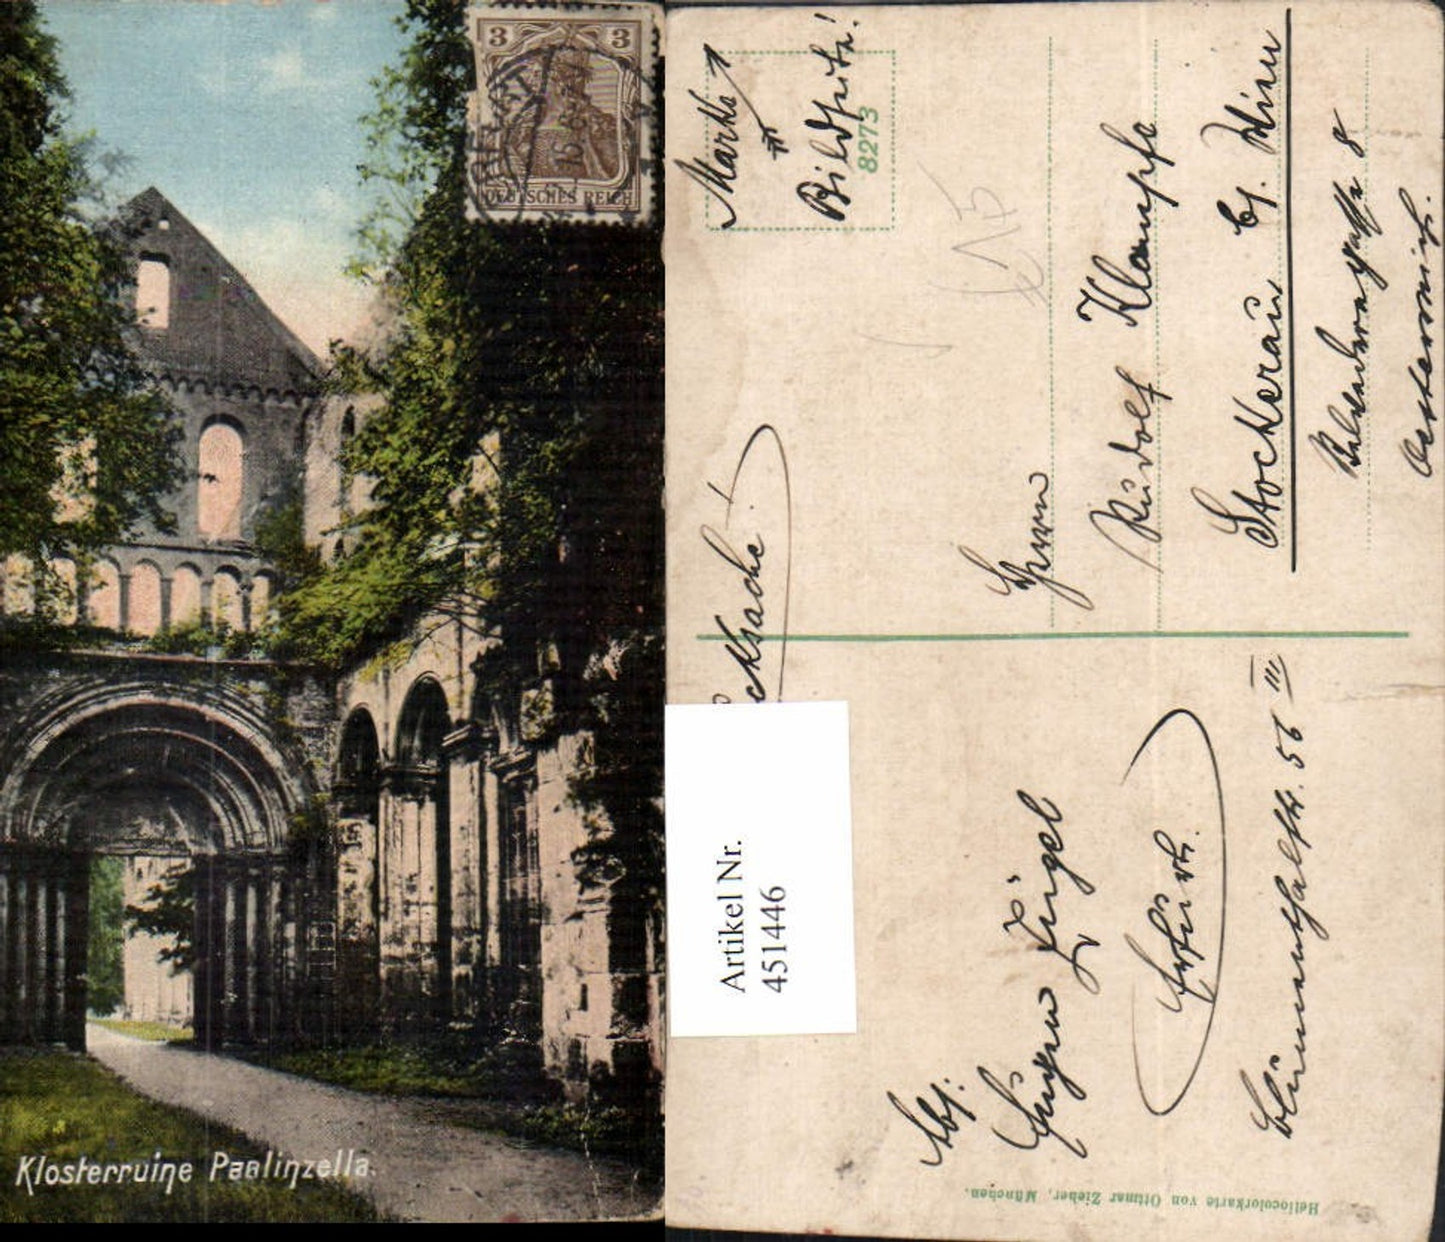 3 3
ERFURT
DEUTSCHES REICH
Klosterruine Paulinzella.
Marke
Bildseite!
8273
Drucksache!
Herrn
Rudolf Klampfe
Stockerau bj. Wien
8
Oesterreich.
Artikel Nr.
451446
Abs:
Eugen Züngel
Erfurt
Blumenthalstr. 56 III
Heliocolorkarte von Ottmar Zieher, München.